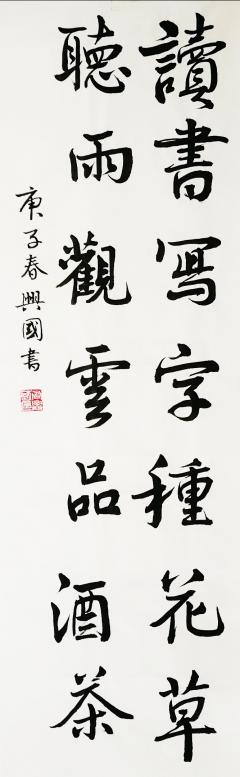 讀書寫字種花草
聽雨觀雲品酒茶
庚子春興國書